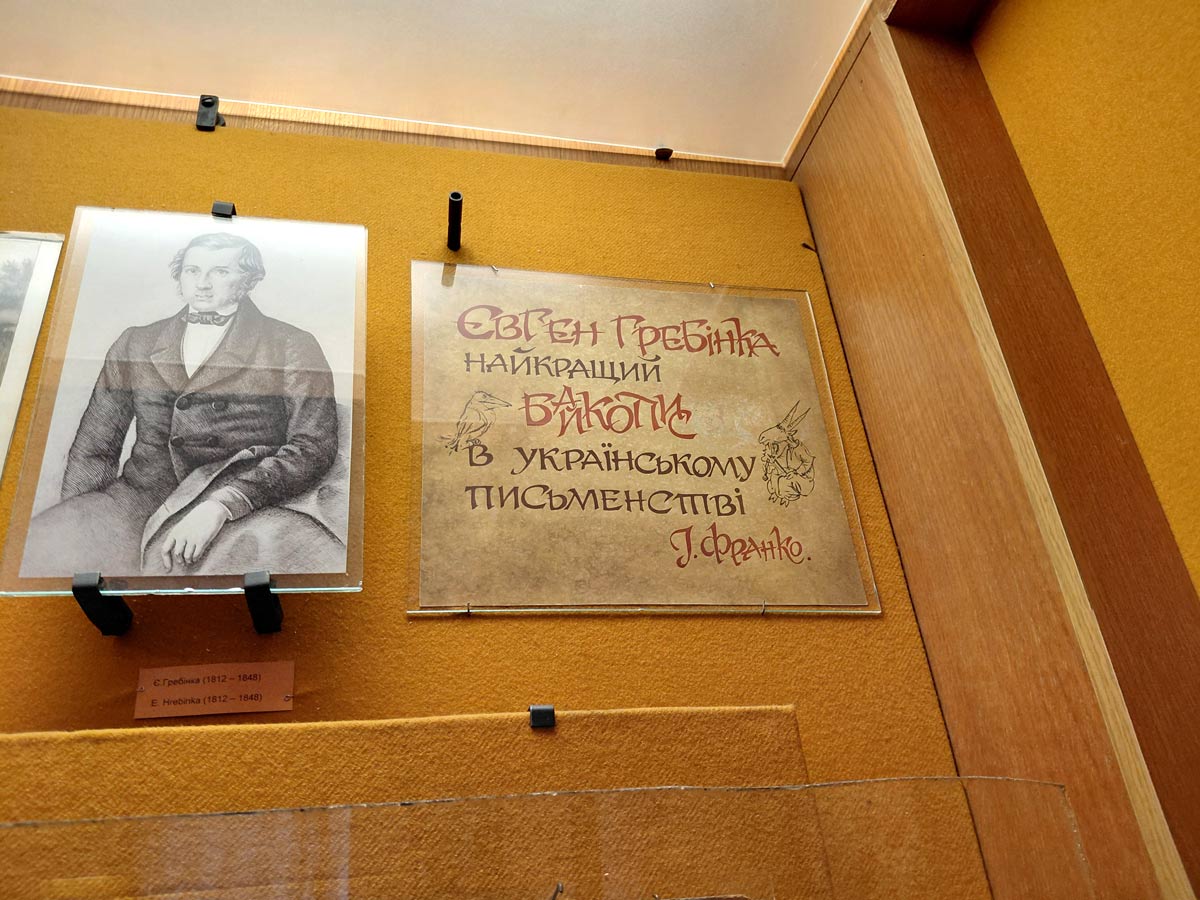 Євген Гребінка
найкращий
байкопись
в українському
письменстві
І. Франко.
Є.Гребінка (1812 – 1848)
E Hrebinka (1812 – 1848)